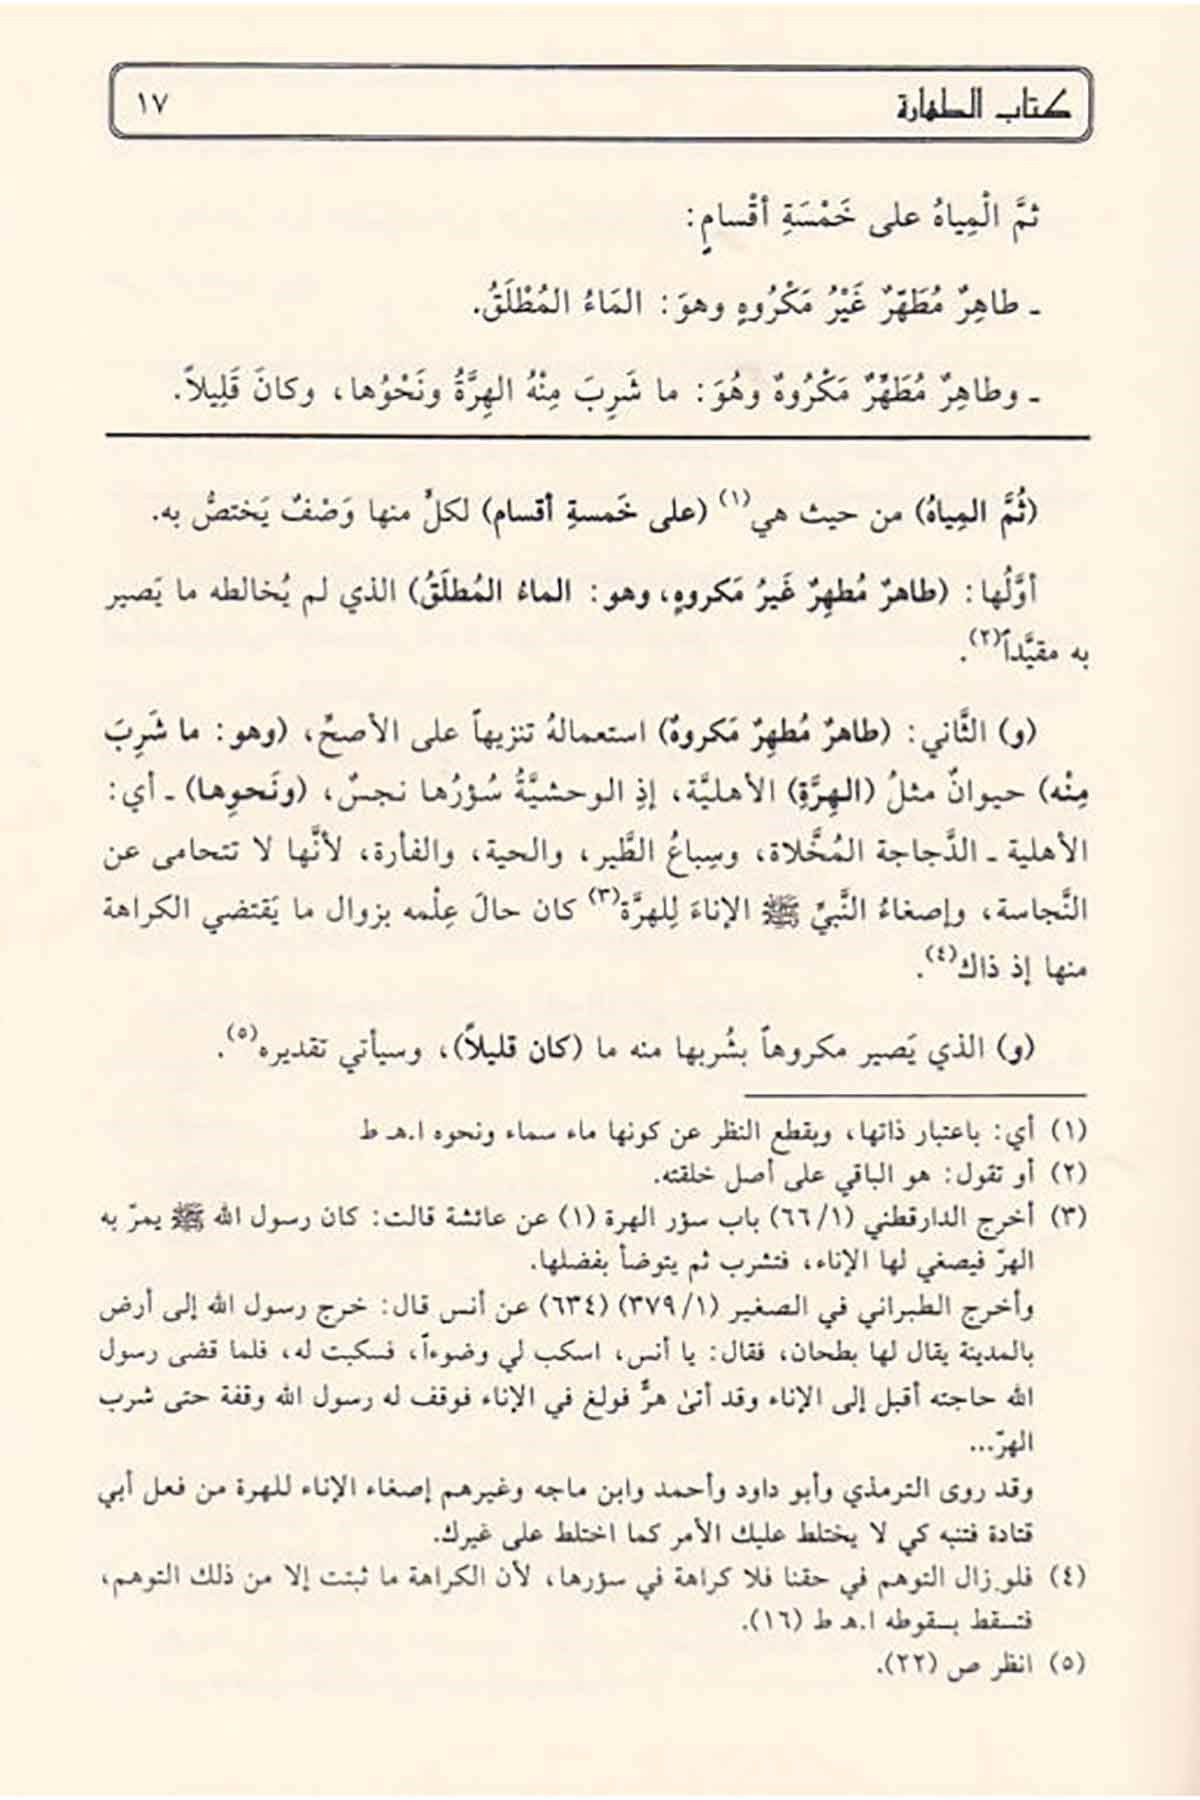 كتاب الطهارة ١٧
ثمَّ الْمِياهُ على خَمْسَةِ أقْسامٍ:
ـ طاهِرٌ مُطَهّرٌ غَيْرُ مَكْرُوهٍ وهوَ: المَاءُ المُطْلَقُ.
ـ وطاهِرٌ مُطَهِّرٌ مَكْرُوهٌ وهُوَ: ما شَرِبَ مِنْهُ الهِرَّةُ ونَحْوُها، وكانَ قَلِيلاً.
(ثُمَّ المِياهُ) من حيث هي(١) (على خَمسةِ أقسام) لكلٍّ منها وَصْفٌ يَختصُّ به.
أوَّلُها: (طاهرٌ مُطهِرٌ غَيرُ مَكروهٍ، وهو: الماءُ المُطلَقُ) الذي لم يُخالطه ما يَصير
به مقيَّداً(٢).
(و) الثَّاني: (طاهرٌ مُطهِرٌ مَكروهٌ) استعمالهُ تنزيهاً على الأصحِّ، (وهو: ما شَرِبَ
مِنْه) حيوانٌ مثلُ (الهِرَّةِ) الأهليَّة، إذِ الوحشيَّةُ سُؤرُها نجسٌ، (ونَحوِها) ـ أي:
الأهلية ـ الدَّجاجة المُخَّلاة، وسِباعُ الطَّير، والحية، والفأرة، لأنَّها لا تتحامى عن
النَّجاسة، وإصغاءُ النَّبيِّ ﷺ الإناءَ لِلهرَّة(٣) كان حالَ عِلْمه بزوال ما يَقتضي الكراهة
منها إذ ذاك(٤).
(و) الذي يَصير مكروهاً بشُربها منه ما (كان قليلاً)، وسيأتي تقديره(٥).
(١) أي: باعتبار ذاتها، وبقطع النظر عن كونها ماء سماء ونحوه ا.هـ ط
(٢) أو تقول: هو الباقي على أصل خلقته.
(٣) أخرج الدارقطني (١/ ٦٦) باب سؤر الهرة (١) عن عائشة قالت: كان رسول الله ﷺ يمرّ به
الهرّ فيصغي لها الإناء، فتشرب ثم يتوضأ بفضلها.
وأخرج الطبراني في الصغير (١/ ٣٧٩) (٦٣٤) عن أنس قال: خرج رسول الله إلى أرض
بالمدينة يقال لها بطحان، فقال: يا أنس، اسكب لي وضوءاً، فسكبت له، فلما قضى رسول
الله حاجته أقبل إلى الإناء وقد أتىٰ هرٌّ فولغ في الإناء فوقف له رسول الله وقفة حتى شرب
الهرّ...
وقد روى الترمذي وأبو داود وأحمد وابن ماجه وغيرهم إصغاء الإناء للهرة من فعل أبي
قتادة فتنبه كي لا يختلط عليك الأمر كما اختلط على غيرك.
(٤) فلو زال التوهم في حقنا فلا كراهة في سؤرها، لأن الكراهة ما ثبتت إلا من ذلك التوهم،
فتسقط بسقوطه ا.هـ ط (١٦).
(٥) انظر ص (٢٢).